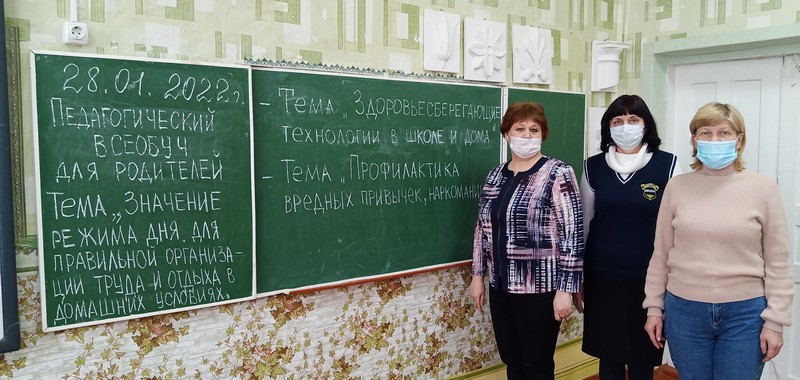 28.01.2022г.
ПЕДАГОГИЧЕСКИЙ
ВСЕОБУЧ
ДЛЯ РОДИТЕЛЕЙ
ТЕМА „ЗНАЧЕНИЕ
РЕЖИМА ДНЯ ДЛЯ
ПРАВИЛЬНОЙ ОРГАНИЗА-
ЦИИ ТРУДА И ОТДЫХА В
ДОМАШНИХ УСЛОВИЯХ.
- ТЕМА „ЗДОРОВЬЕСБЕРЕГАЮЩИЕ
ТЕХНОЛОГИИ В ШКОЛЕ И ДОМА
- ТЕМА „ПРОФИЛАКТИКА
ВРЕДНЫХ ПРИВЫЧЕК,